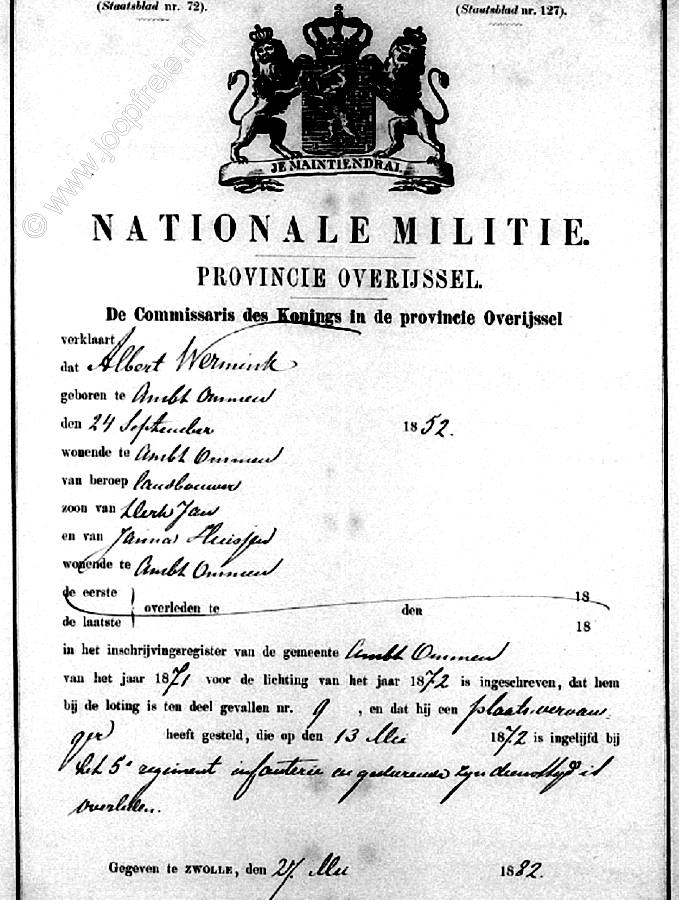 (Staatsblad nr. 72).
(Staatsblad nr. 127).
© www.joopfreie.nl
JE MAINTIENDRAI
NATIONALE MILITIE.
PROVINCIE OVERIJSSEL.
De Commissaris des Konings in de provincie Overijssel
verklaart
dat Albert Wermink
geboren te Ambt Ommen
den 24 September 1852.
wonende te Ambt Ommen
van beroep landbouwer
zoon van Derk Jan
en van Janna Huisjes
wonende te Ambt Ommen
de eerste 18
overleden te den
de laatste 18
in het inschrijvingsregister van de gemeente Ambt Ommen
van het jaar 1871 voor de lichting van het jaar 1872 is ingeschreven, dat hem
bij de loting is ten deel gevallen nr. 9, en dat hij een plaatsvervan-
ger heeft gesteld, die op den 13 Mei 1872 is ingelijfd bij
het 5e regiment infanterie en gedurende zijn diensttijd is
overleden.
Gegeven te ZWOLLE, den 27 Mei 1882.